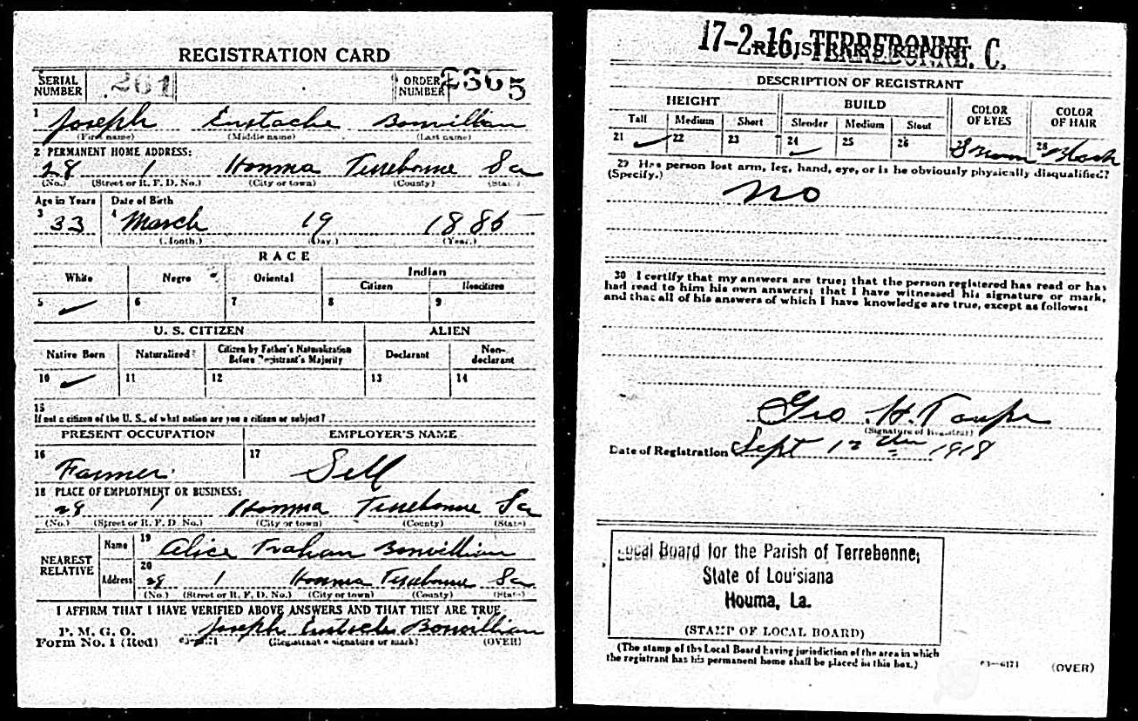 REGISTRATION CARD
SERIAL NUMBER 261 ORDER NUMBER 2365
1 Joseph Eustache Bonvillian
(First name) (Middle name) (Last name)
2 PERMANENT HOME ADDRESS:
28 1 Houma Terrebonne La
(No.) (Street or R. F. D. No.) (City or town) (County) (State)
Age in Years Date of Birth
3 33 4 March 19 1885
(Month.) (Day.) (Year.)
RACE
White Negro Oriental Indian
Citizen Noncitizen
5 ✓ 6 7 8 9
U. S. CITIZEN ALIEN
Native Born Naturalized Citizen by Father's Naturalization Before Registrant's Majority Declarant Non-declarant
10 ✓ 11 12 13 14
15
If not a citizen of the U. S., of what nation are you a citizen or subject?
PRESENT OCCUPATION EMPLOYER'S NAME
16 Farmer 17 Self
18 PLACE OF EMPLOYMENT OR BUSINESS:
28 1 Houma Terrebonne La
(No.) (Street or R. F. D. No.) (City or town) (County) (State)
NEAREST RELATIVE Name 19 Alice Trahan Bonvillian
Address 20 28 1 Houma Terrebonne La
(No.) (Street or R. F. D. No.) (City or town) (County) (State)
I AFFIRM THAT I HAVE VERIFIED ABOVE ANSWERS AND THAT THEY ARE TRUE
P. M. G. O.
Form No. 1 (Red) Joseph Eustache Bonvillian
(Registrant's signature or mark) (OVER)
17-2-16, TERREBONNE. C.
REGISTRAR'S REPORT
DESCRIPTION OF REGISTRANT
HEIGHT BUILD COLOR OF EYES COLOR OF HAIR
Tall Medium Short Slender Medium Stout
21 ✓ 22 23 24 ✓ 25 26 Brown 28 Black
29 Has person lost arm, leg, hand, eye, or is he obviously physically disqualified?
(Specify.)
no
30 I certify that my answers are true; that the person registered has read or has
had read to him his own answers; that I have witnessed his signature or mark,
and that all of his answers of which I have knowledge are true, except as follows:
Geo. H.
(Signature of Registrar)
Date of Registration Sept 12th 1918
Local Board for the Parish of Terrebonne;
State of Louisiana
Houma, La.
(STAMP OF LOCAL BOARD)
(The stamp of the Local Board having jurisdiction of the area in which
the registrant has his permanent home shall be placed in this box.)
03—6171 (OVER)